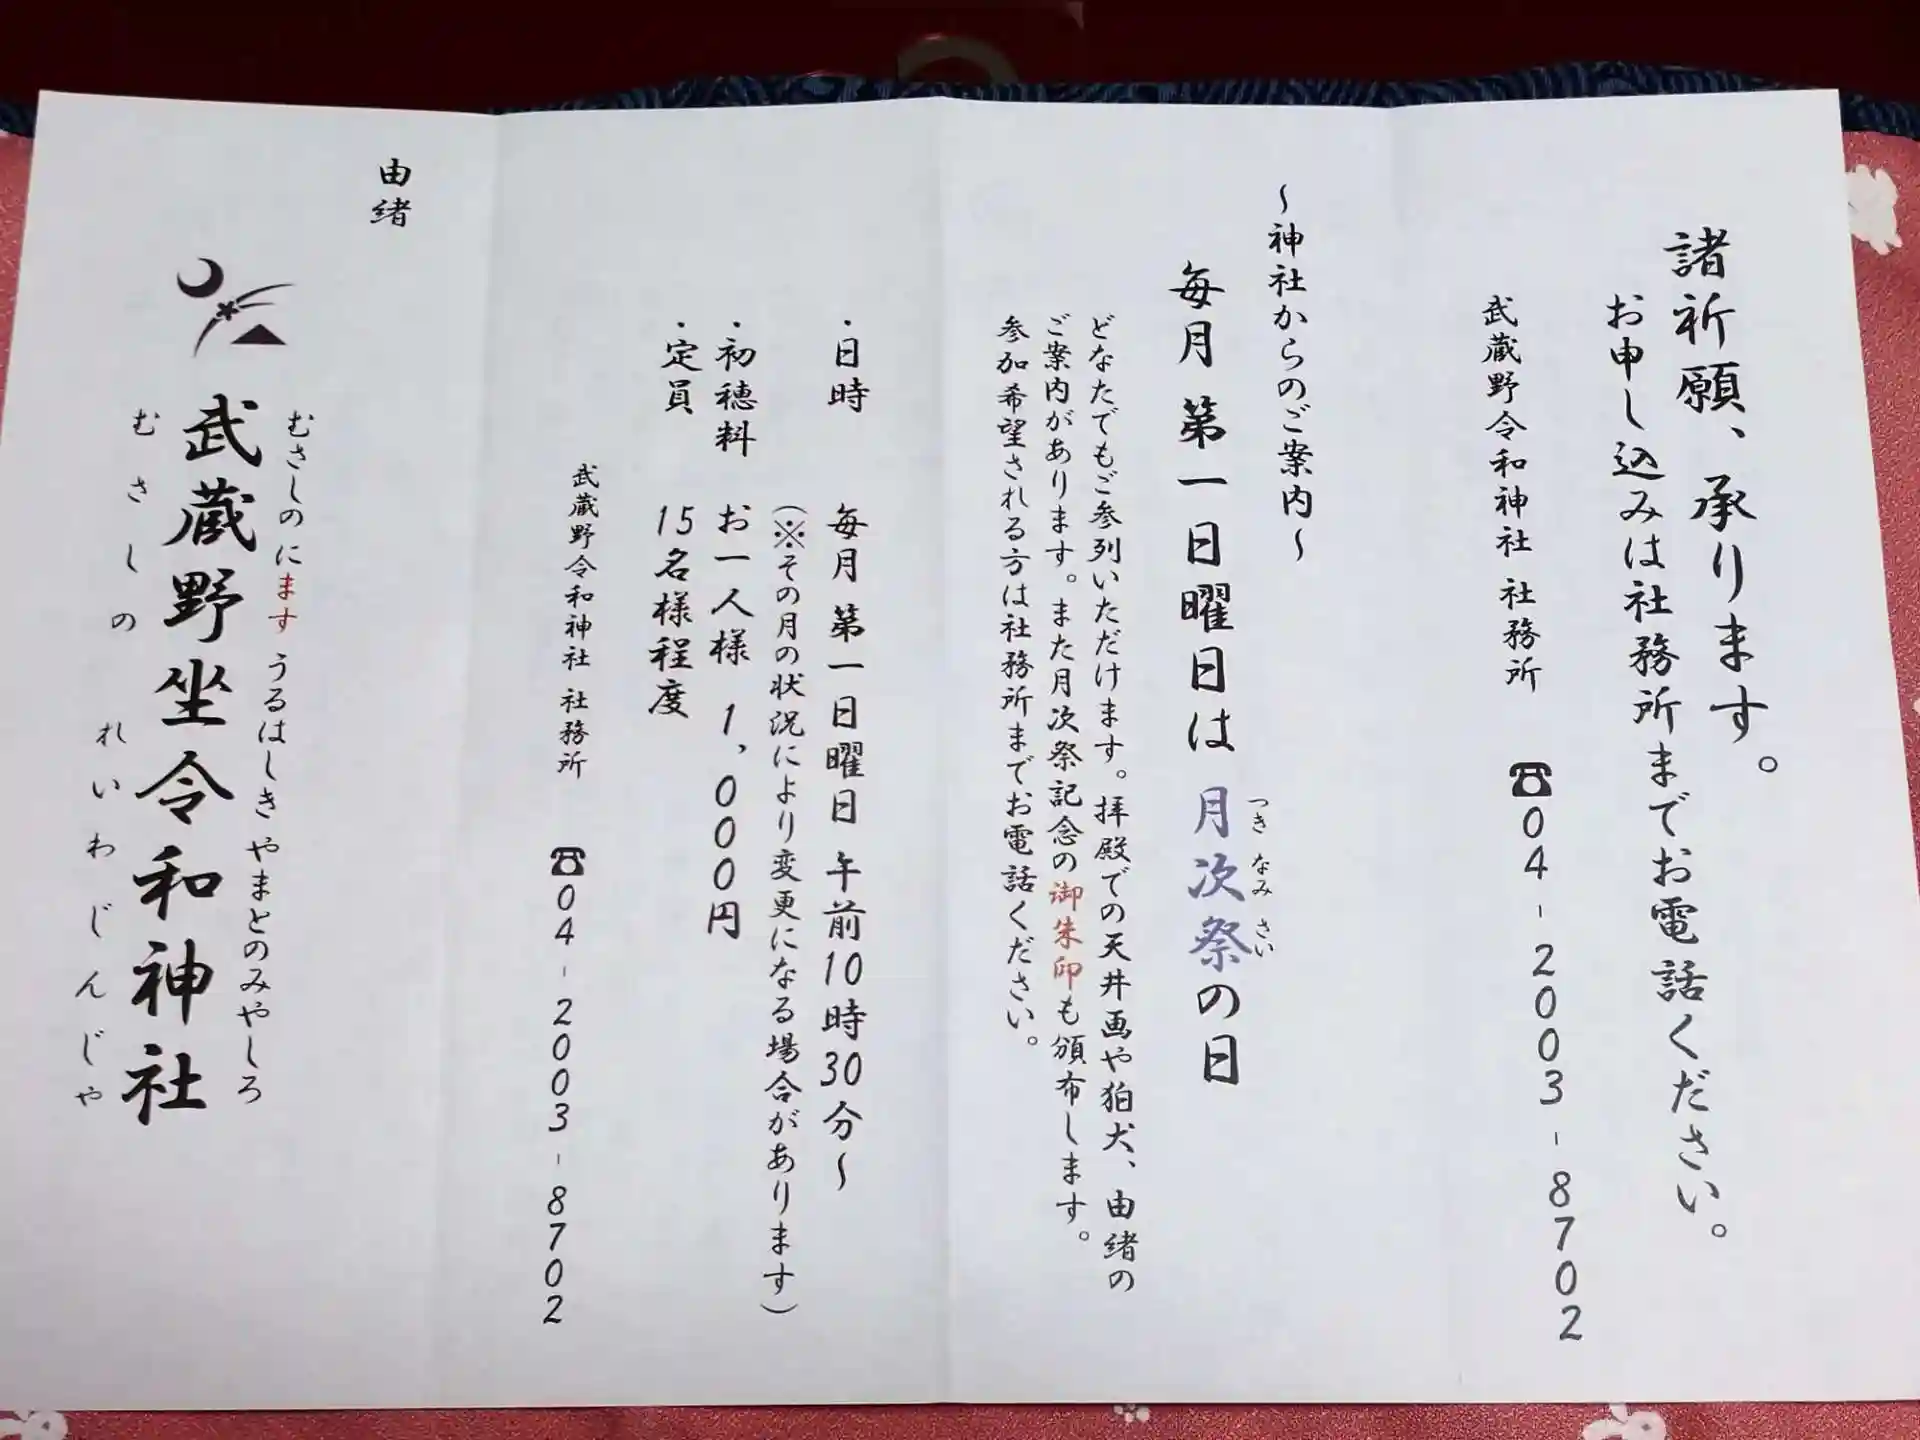 諸祈願、承ります。
お申し込みは社務所までお電話ください。
武蔵野令和神社 社務所 ☎04-2003-8702
～神社からのご案内～
毎月 第一日曜日は 月次祭の日
つき なみ さい
どなたでもご参列いただけます。拝殿での天井画や狛犬、由緒の
ご案内があります。また月次祭記念の御朱印も頒布します。
参加希望される方は社務所までお電話ください。
・日時 毎月 第一日曜日 午前10時30分～
(※その月の状況により変更になる場合があります)
・初穂料 お一人様 1,000円
・定員 15名様程度
武蔵野令和神社 社務所 ☎04-2003-8702
由緒
むさしのにます うるはしき やまとのみやしろ
武蔵野坐令和神社
むさしの れいわじんじゃ